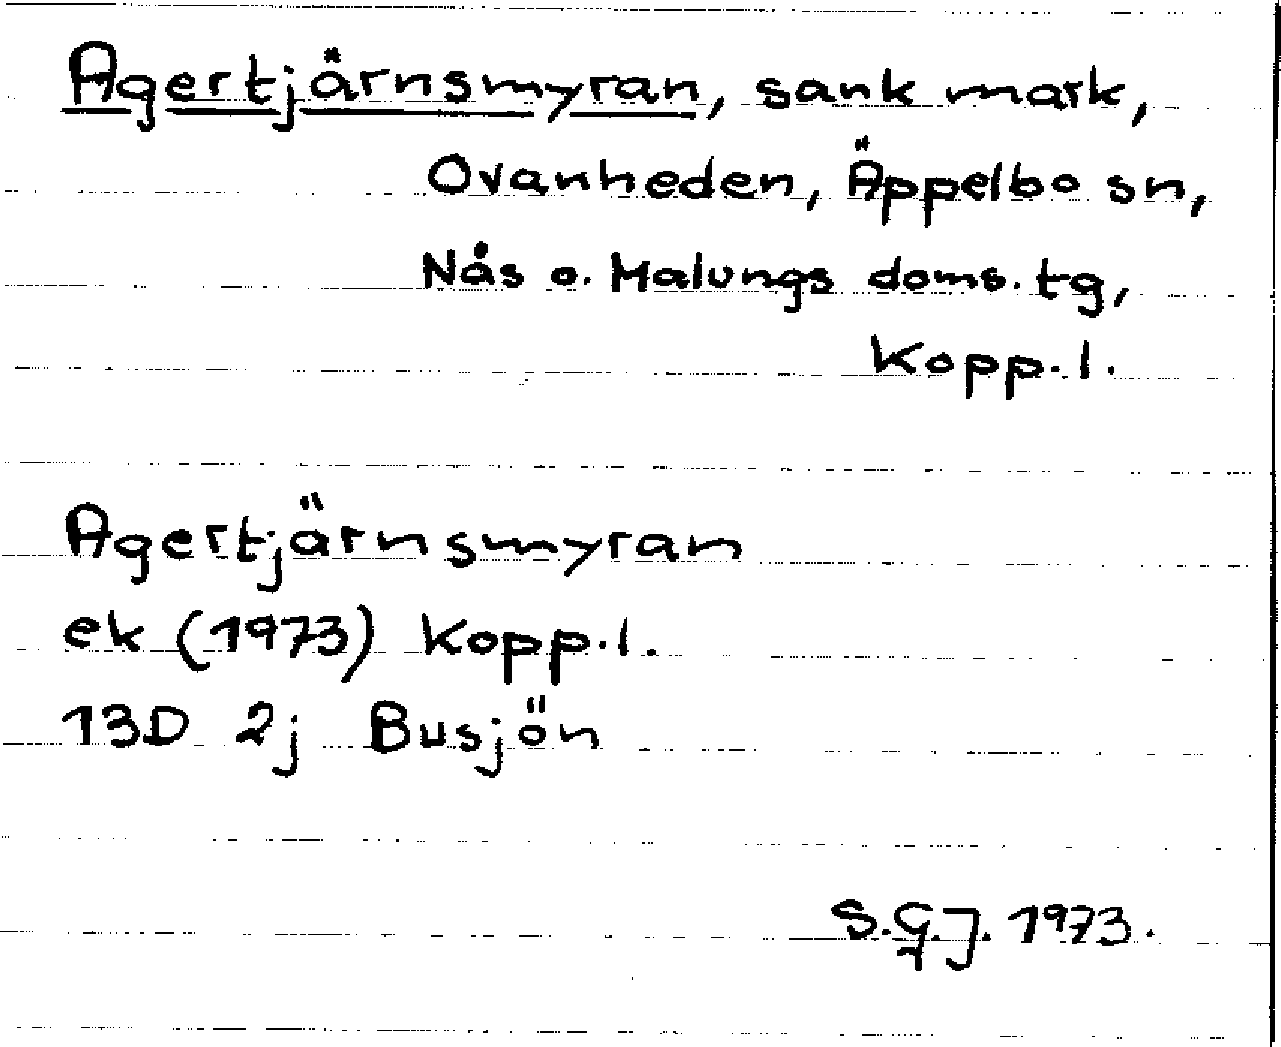 Agertjärnsmyran, sank mark,
Ovanheden, Äppelbo sn,
Nås o. Malungs doms. tg,
Kopp. l.
Agertjärnsmyran
ek (1973) Kopp. l.
13D 2j Busjön
S.G.J. 1973.